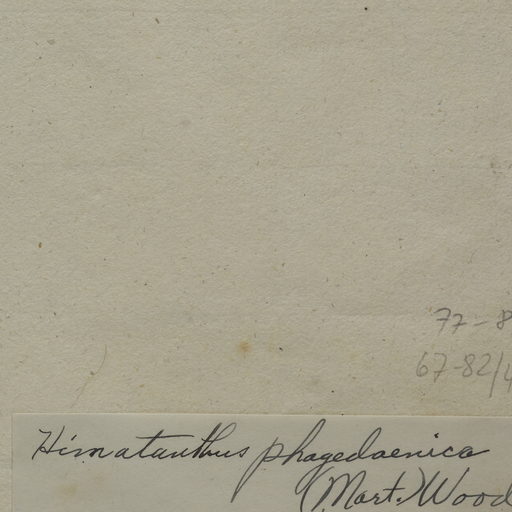 77-8
67-82/4
Himatanthus phagedaenica
(Mart.) Wood